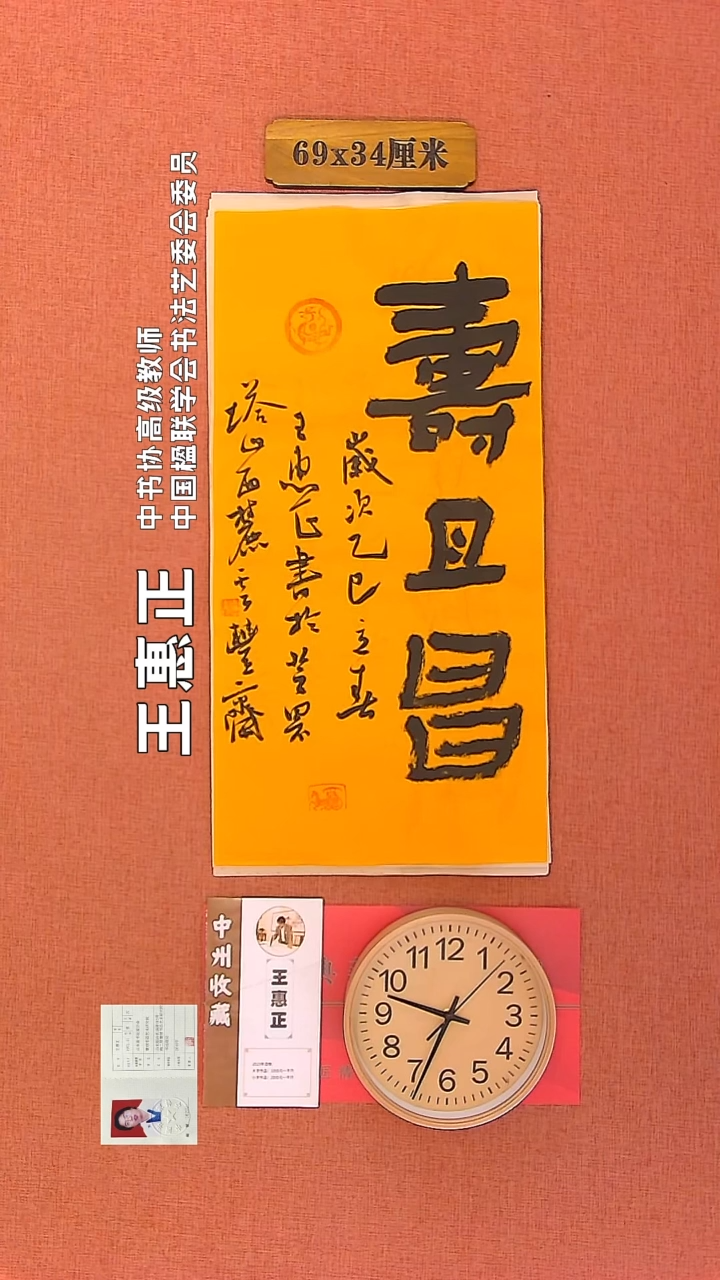 69x34厘米
中书协高级教师
中国楹联学会书法艺委会委员
王惠正
壽且昌
歲次乙巳立春
王惠正書於芝罘
塔山西麓雲豐齋
中州收藏
王惠正
12
1
2
3
4
5
6
7
8
9
10
11